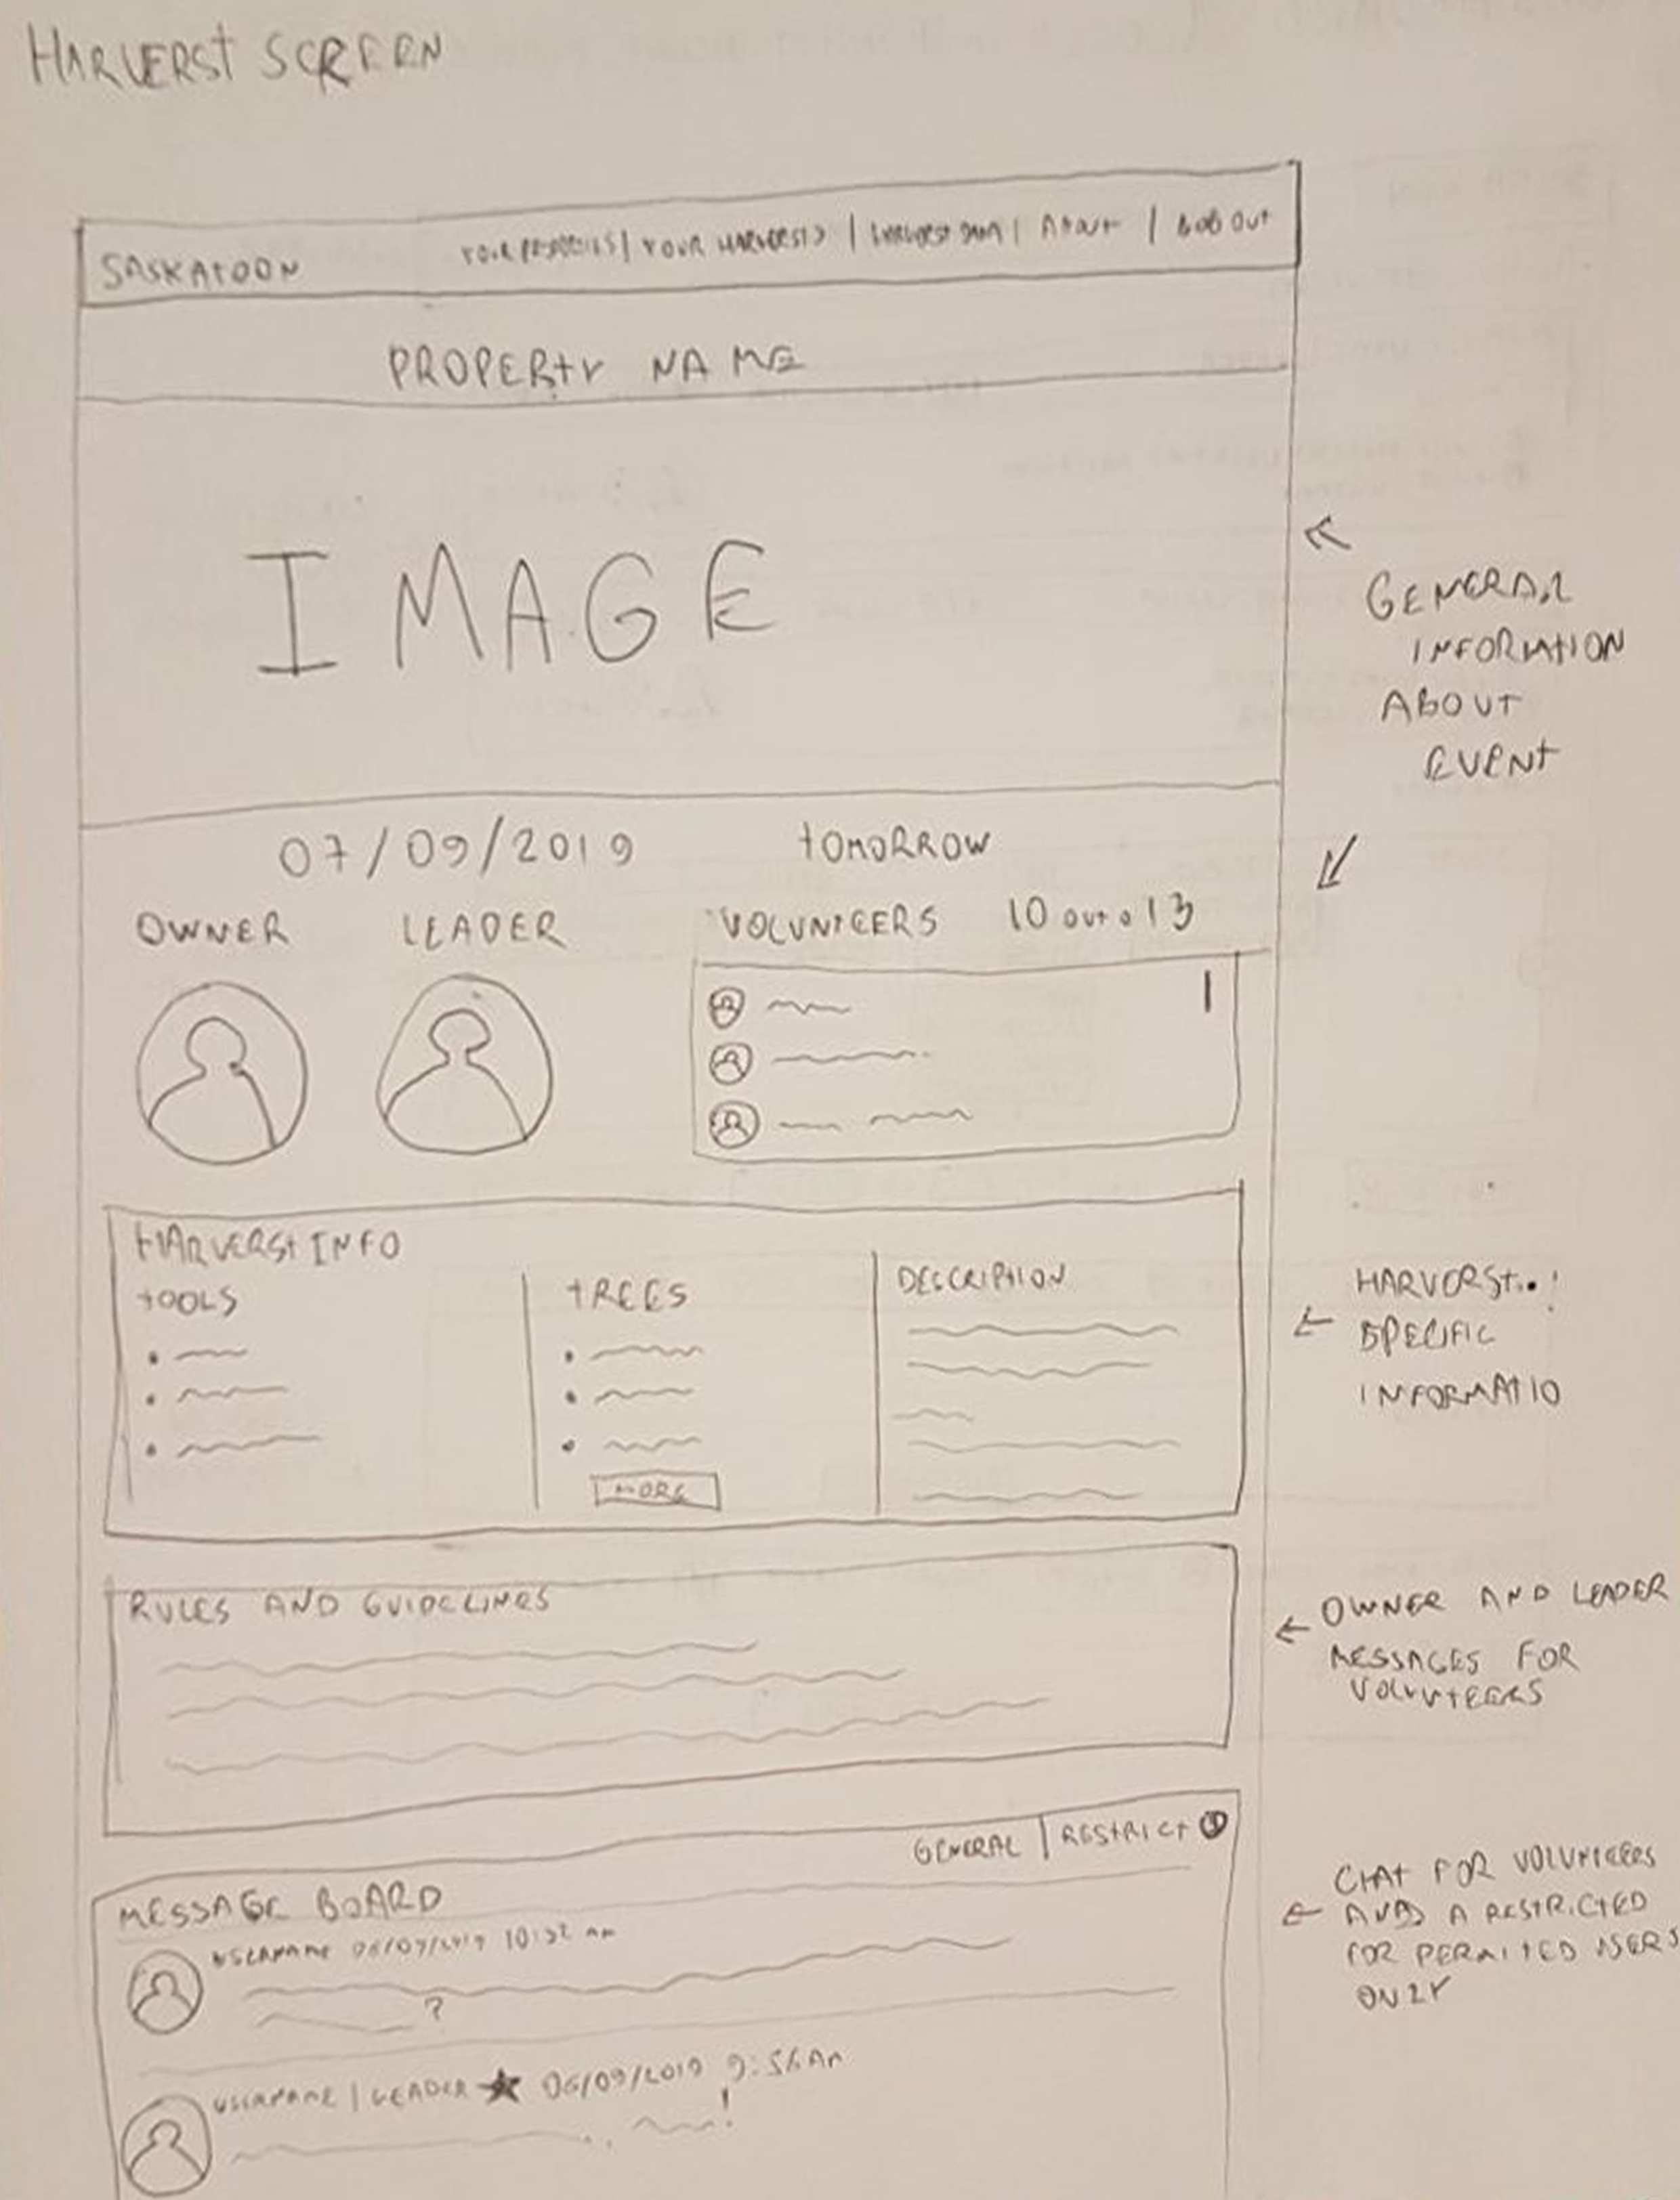 HARVERST SCREEN
SASKATOON
YOUR PROPERTIES | YOUR HARVESTS | | ABOUT | LOG OUT
PROPERTY NAME
IMAGE
GENERAL
INFORMATION
ABOUT
EVENT
07/09/2019 TOMORROW
OWNER LEADER VOLUNTEERS 10 OUT O 13
HARVERST INFO
TOOLS TREES DESCRIPTION
MORE
HARVERST
SPECIFIC
INFORMATIO
RULES AND GUIDELINES
OWNER AND LEADER
MESSAGES FOR
VOLUNTEERS
GENERAL | RESTRICT
MESSAGE BOARD
USERNAME 06/09/2019 10:32 AM
?
USERNAME | LEADER ★ 06/09/2019 9:56 AM
!
CHAT FOR VOLUNTEERS
A RESTRICTED
FOR PERMITED USERS
ONLY